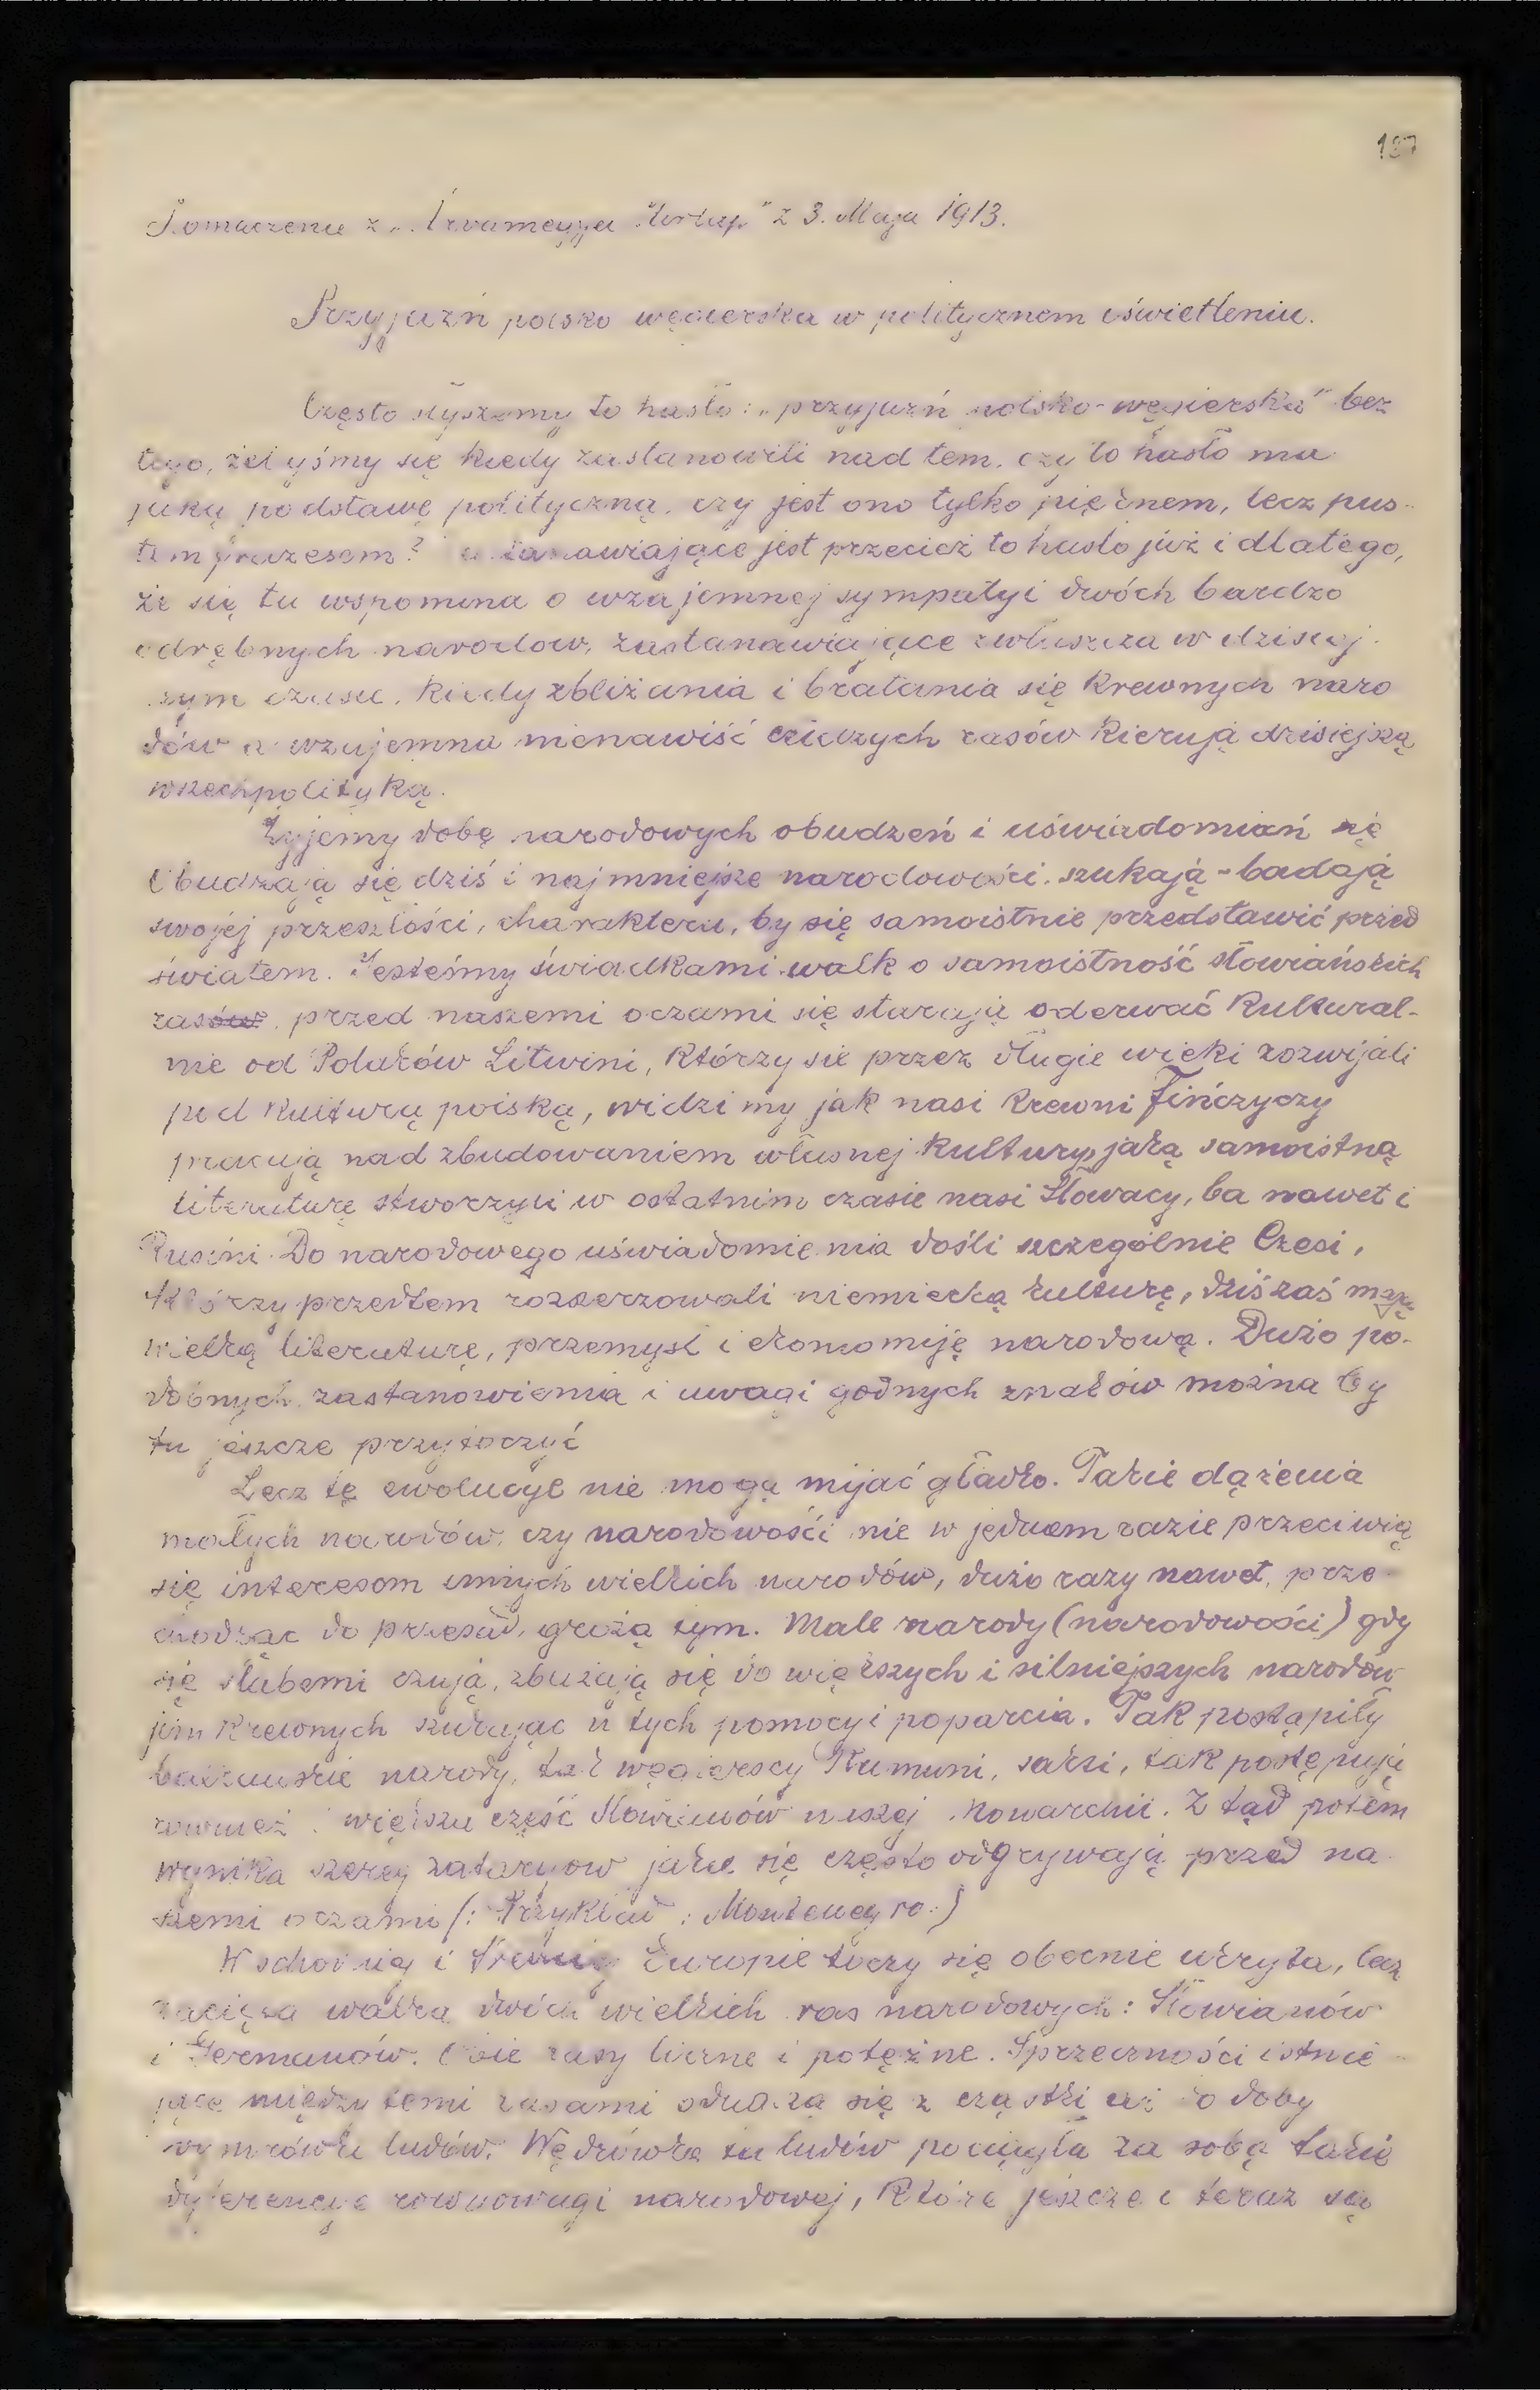 137
z 3. Maja 1913.
Przyjaźń polsko węgierska w politycznem oświetleniu.
Często słyszymy to hasło: „przyjaźń polsko-węgierska" bez
tego, żebyśmy się kiedy zastanowili nad tem, czy to hasło ma
jaką podstawę polityczną, czy jest ono tylko pięknem, lecz pus-
tem frazesem? jest przecież to hasło już i dlatego,
że się tu wspomina o wzajemnej sympatyi dwóch bardzo
odrębnych narodow, zastanawiające zwłaszcza w dzisiej-
szym czasie, kiedy zbliżania i bratania się krewnych naro
dów a wzajemna nienawiść rasów kierują dzisiejszą
wszechpolityką.
Żyjemy dobę narodowych obudzeń i uświadomiań się
Obudzają się dziś i najmniejsze narodowości, szukają - badają
swojej przeszłości, charakteru, by się samoistnie przedstawić przed
światem. Jesteśmy świadkami walk o samoistność słowiańskich
ras, przed naszemi oczami się starają oderwać kultural-
nie od Polaków Litwini, którzy sie przez długie wieki rozwijali
pod kulturą polską, widzimy jak nasi krewni Fińczyczy
pracują nad zbudowaniem własnej kultury, jaką samoistną
literaturę stworzyli w ostatnim czasie nasi Słowacy, ba nawet i
Rusini. Do narodowego uświadomienia dośli szczególnie Czesi,
którzy przedtem rozszerzowali niemiecką kulturę, dziś zaś mają
wielką literaturę, przemysł i ekonomiję narodową. Dużo po-
dobnych, zastanowienia i uwagi godnych znaków można by
tu jeszcze przytoczyć
Lecz tę ewolucye nie mogą mijać gładko. Takie dążenia
małych narodów, czy narodowośći nie w jednem razie przeciwią
się interesom innych wielkich narodów, dużo razy nawet, prze-
chodząc do przesad, grożą tym. Małe narody (narodowości) gdy
się słabemi czują, zbliżają się do większych i silniejszych narodów
jim krewnych szukając u tych pomocy i poparcia. Tak postąpiły
bałkańskie narody, tak węgierscy Rumuni, saksi, tak postępują
rownież i większa część Słowianów naszej Monarchii. Z tąd potem
wynika szereg zatargow jakie się często odgrywają przed na-
szemi oczami (: Przykład: Montenegro :)
Wschodniej i Europie toczy się obecnie ukryta, lecz
zacięta walka dwóch wielkich ras narodowych: Słowianów
i Germanów. Obie rasy liczne i potężne. Sprzeczności istnie-
jące między temi rasami się z cząstki aż do doby
ludów. Wędrówka ta ludów pociągła za sobą takie
dyferencye rownowagi narodowej, które jeszcze i teraz są